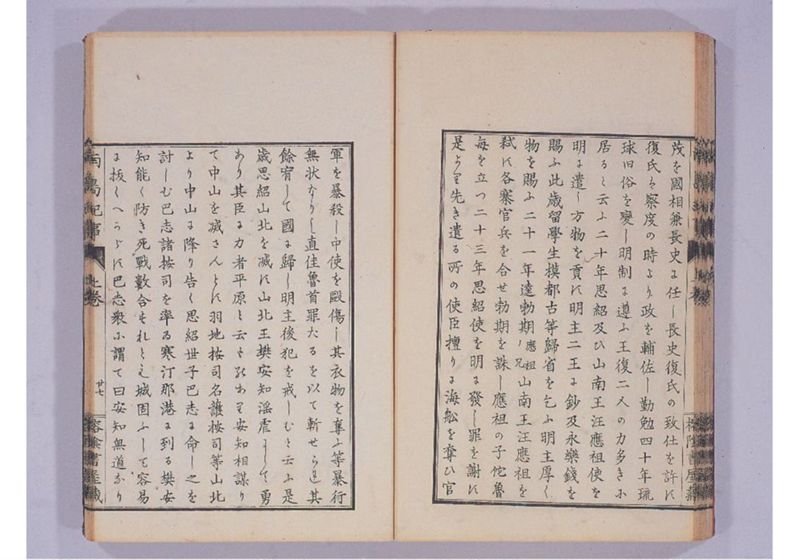 茂を國相兼長史に任し長史復氏の致仕を許に
復氏ハ察度の時より政を輔佐し勤勉四十年琉
球旧俗を變し明制に遵ふ王復二人の力多きに
居ると云ふ二十年思紹及ひ山南王汪應祖使を
明に遣し方物を貢に明主二王に鈔及永樂錢を
賜ふ此歳留學生模都古等歸省を乞ふ明主厚く
物を賜ふ二十一年達勃期應祖ノ兄山南王汪應祖を
弑に各寨官兵を合せ勃期を誅し應祖の子侘魯
毎を立つ二十三年思紹使を明に發し罪を謝に
是より先き遣る所の使臣擅りに海舩を奪ひ官
軍を暴殺し中使を毆傷し其衣物を奪ふ等暴行
無状なりし直佳魯首罪たるを以て斬せられ其
餘宥して國に歸し明主後犯を戒しむと云ふ是
歳思紹山北を滅に山北王樊安知淫虐にして勇
あり其臣に力者平原と云ものあり安知相謀り
て中山を滅さんとに羽地按司名護按司等山北
より中山に降り告く思紹世子巴志に命し之を
討しむ巴志諸按司を率る寒汀那港に到る樊安
知能く防き死戰數合もれとも城固ふして容易
に拔くへらに巴志衆に謂て曰安知無道なり
南島紀事 上卷 廿七